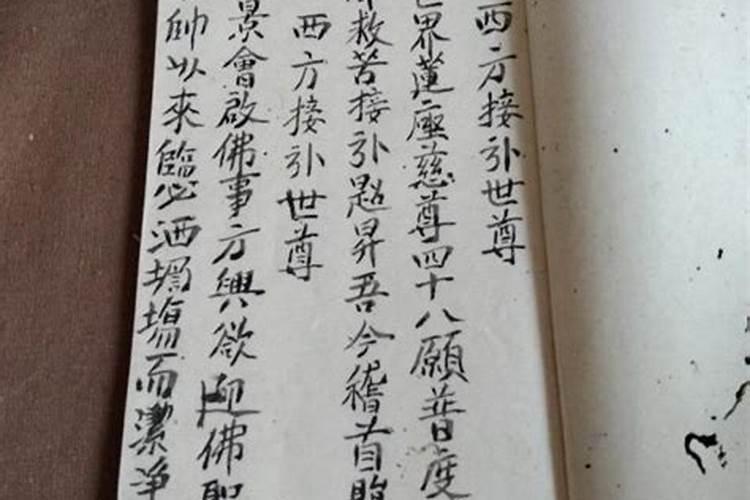 西方接引世尊
世界蓮座慈尊四十八願普度
救苦接引超昇吾今稽首
西方接引世尊
景會啟佛事方興欲迎佛聖
帥以來臨必洒壇場而潔净